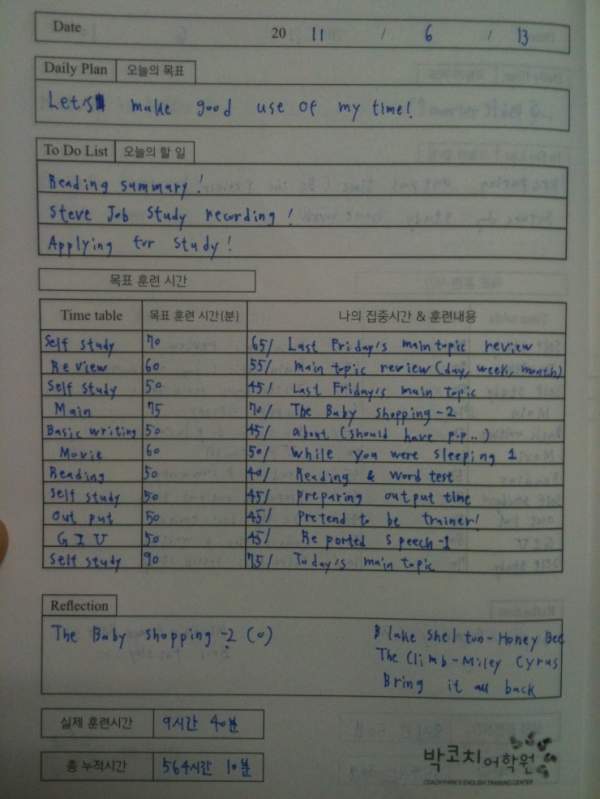 Date 20 11 / 6 / 13
Daily Plan 오늘의 목표
Let's make good use of my time!
To Do List 오늘의 할 일
Reading summary!
Steve Job study recording!
Applying for study!
목표 훈련 시간
Time table 목표 훈련 시간(분) 나의 집중시간 & 훈련내용
Self study 70 65/ Last Friday's main topic review
Review 60 55/ main topic review (day, week, month)
Self study 50 45/ Last Friday's main topic
Main 75 70/ The Baby shopping-2
Basic writing 50 45/ about (should have p.p..)
Movie 60 50/ While you were sleeping 1
Reading 50 40/ Reading & word test
Self study 50 45/ preparing output time
Out put 50 45/ Pretend to be trainer!
G I U 50 45/ Reported speech-1
Self study 90 75/ Today's main topic
Reflection
The Baby shopping-2 (0) Blake Shelton-Honey Bee
The Climb-Miley Cyrus
Bring it all back
실제 훈련시간 9시간 40분
총 누적시간 564시간 10분
박코치어학원
COACH PARK'S ENGLISH TRAINING CENTER